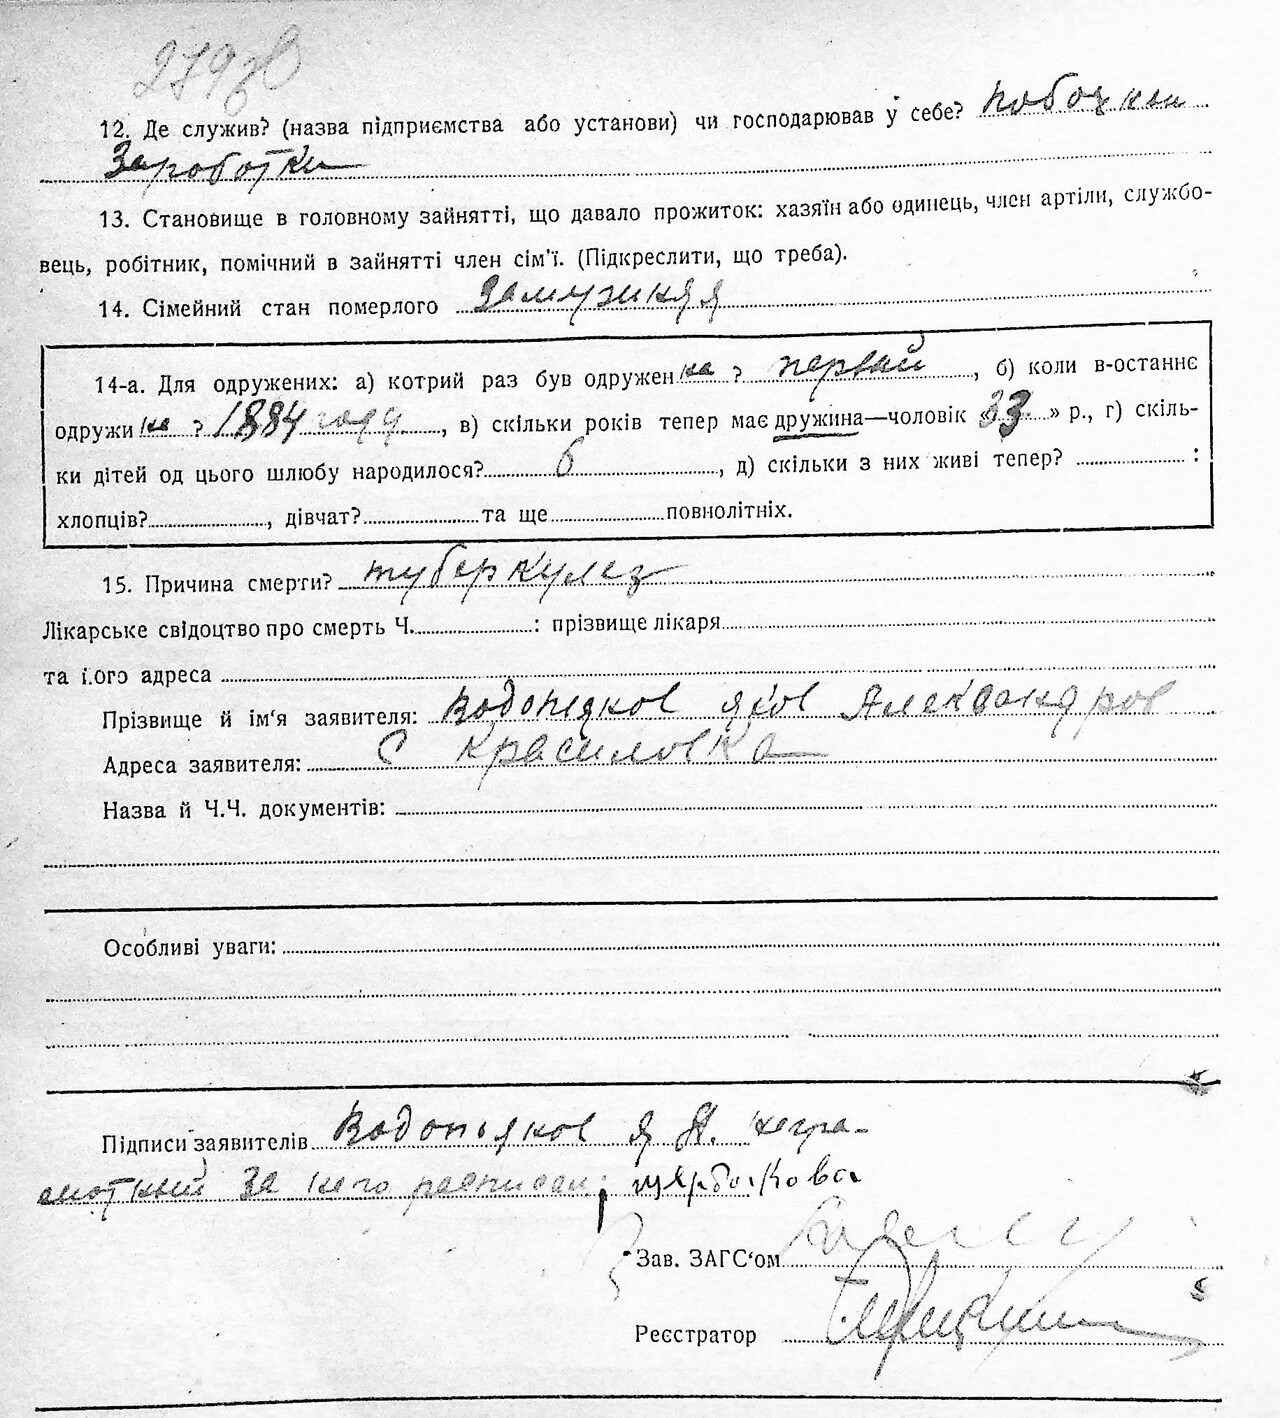 12. Де служив? (назва підприємства або установи) чи господарював у себе? побочныи
Заработки
13. Становище в головному зайнятті, що давало прожиток: хазяїн або одинець, член артіли, службо-
вець, робітник, помічний в зайнятті член сім'ї. (Підкреслити, що треба).
14. Сімейний стан померлого замужняя
14-а. Для одружених: а) котрий раз був одружен на ? первый, б) коли в-останнє
одружи на ? 1884 году, в) скільки років тепер має дружина—чоловік «33» р., г) скіль-
ки дітей од цього шлюбу народилося? 6, д) скільки з них живі тепер? :
хлопців?, дівчат? та ще повнолітніх.
15. Причина смерти? туберкулез
Лікарське свідоцтво про смерть Ч. : прізвище лікаря
та його адреса
Прізвище й ім'я заявителя: Водопянов Яков Александров
Адреса заявителя: с Красиловка
Назва й Ч.Ч. документів:
Особливі уваги:
Підписи заявителів Водопьянов Я А. негра-
мотный за него расписал
Зав. ЗАГС'ом
Реєстратор